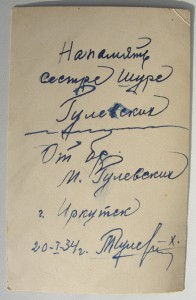 На память
сестре Шуре
Гулевских
От бр.
И. Гулевских
г. Иркутск
20-I-34 г.